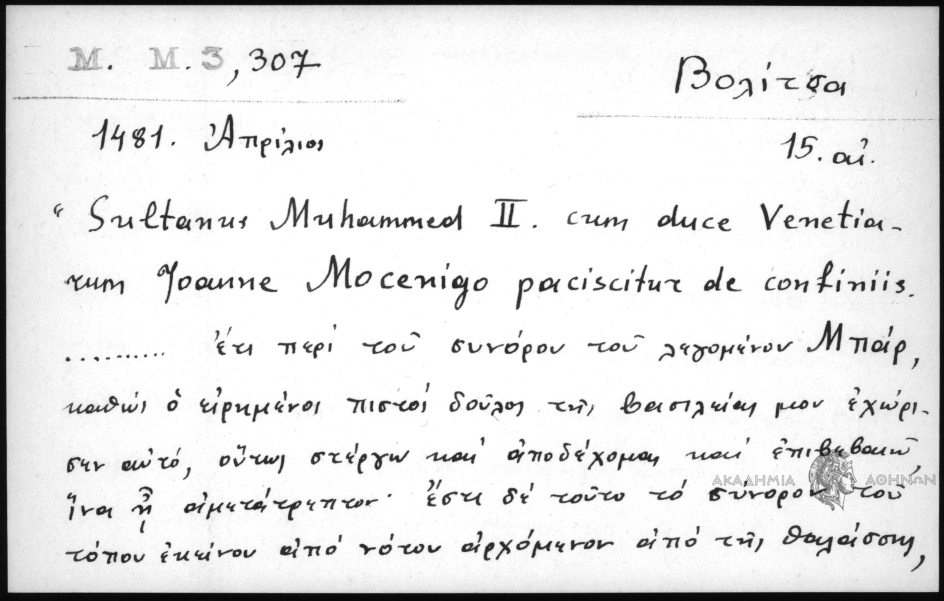 M. M. 3, 307
Βολίτσα
1481. Ἀπρίλιος
15. αἰ.
“Sultanus Muhammed II. cum duce Venetia-
rum Joanne Mocenigo paciscitur de confiniis.
.......... ἔτι περί τοῦ συνόρου τοῦ λεγομένου Μπάρ,
καθώς ὁ εἰρημένος πιστός δοῦλος τῆς βασιλείας μου ἐχώρι-
σεν αὐτό, οὕτως στέργω καί ἀποδέχομαι καί ἐπιβεβαιῶ,
ΑΚΑΔΗΜΙΑ ΑΘΗΝΩΝ
ἵνα ᾖ ἀμετάτρεπτον· ἔστι δέ τοῦτο τό σύνορον τοῦ
τόπου ἐκείνου ἀπό νότου ἀρχόμενον ἀπό τῆς θαλάσσης,